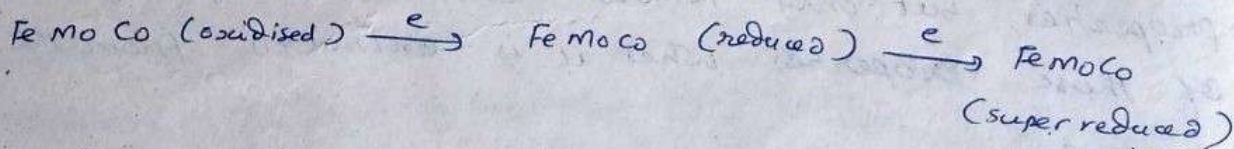 Fe Mo Co (oxidised) e→ FeMoCo (reduced) e→ FeMoCo
(super reduced)